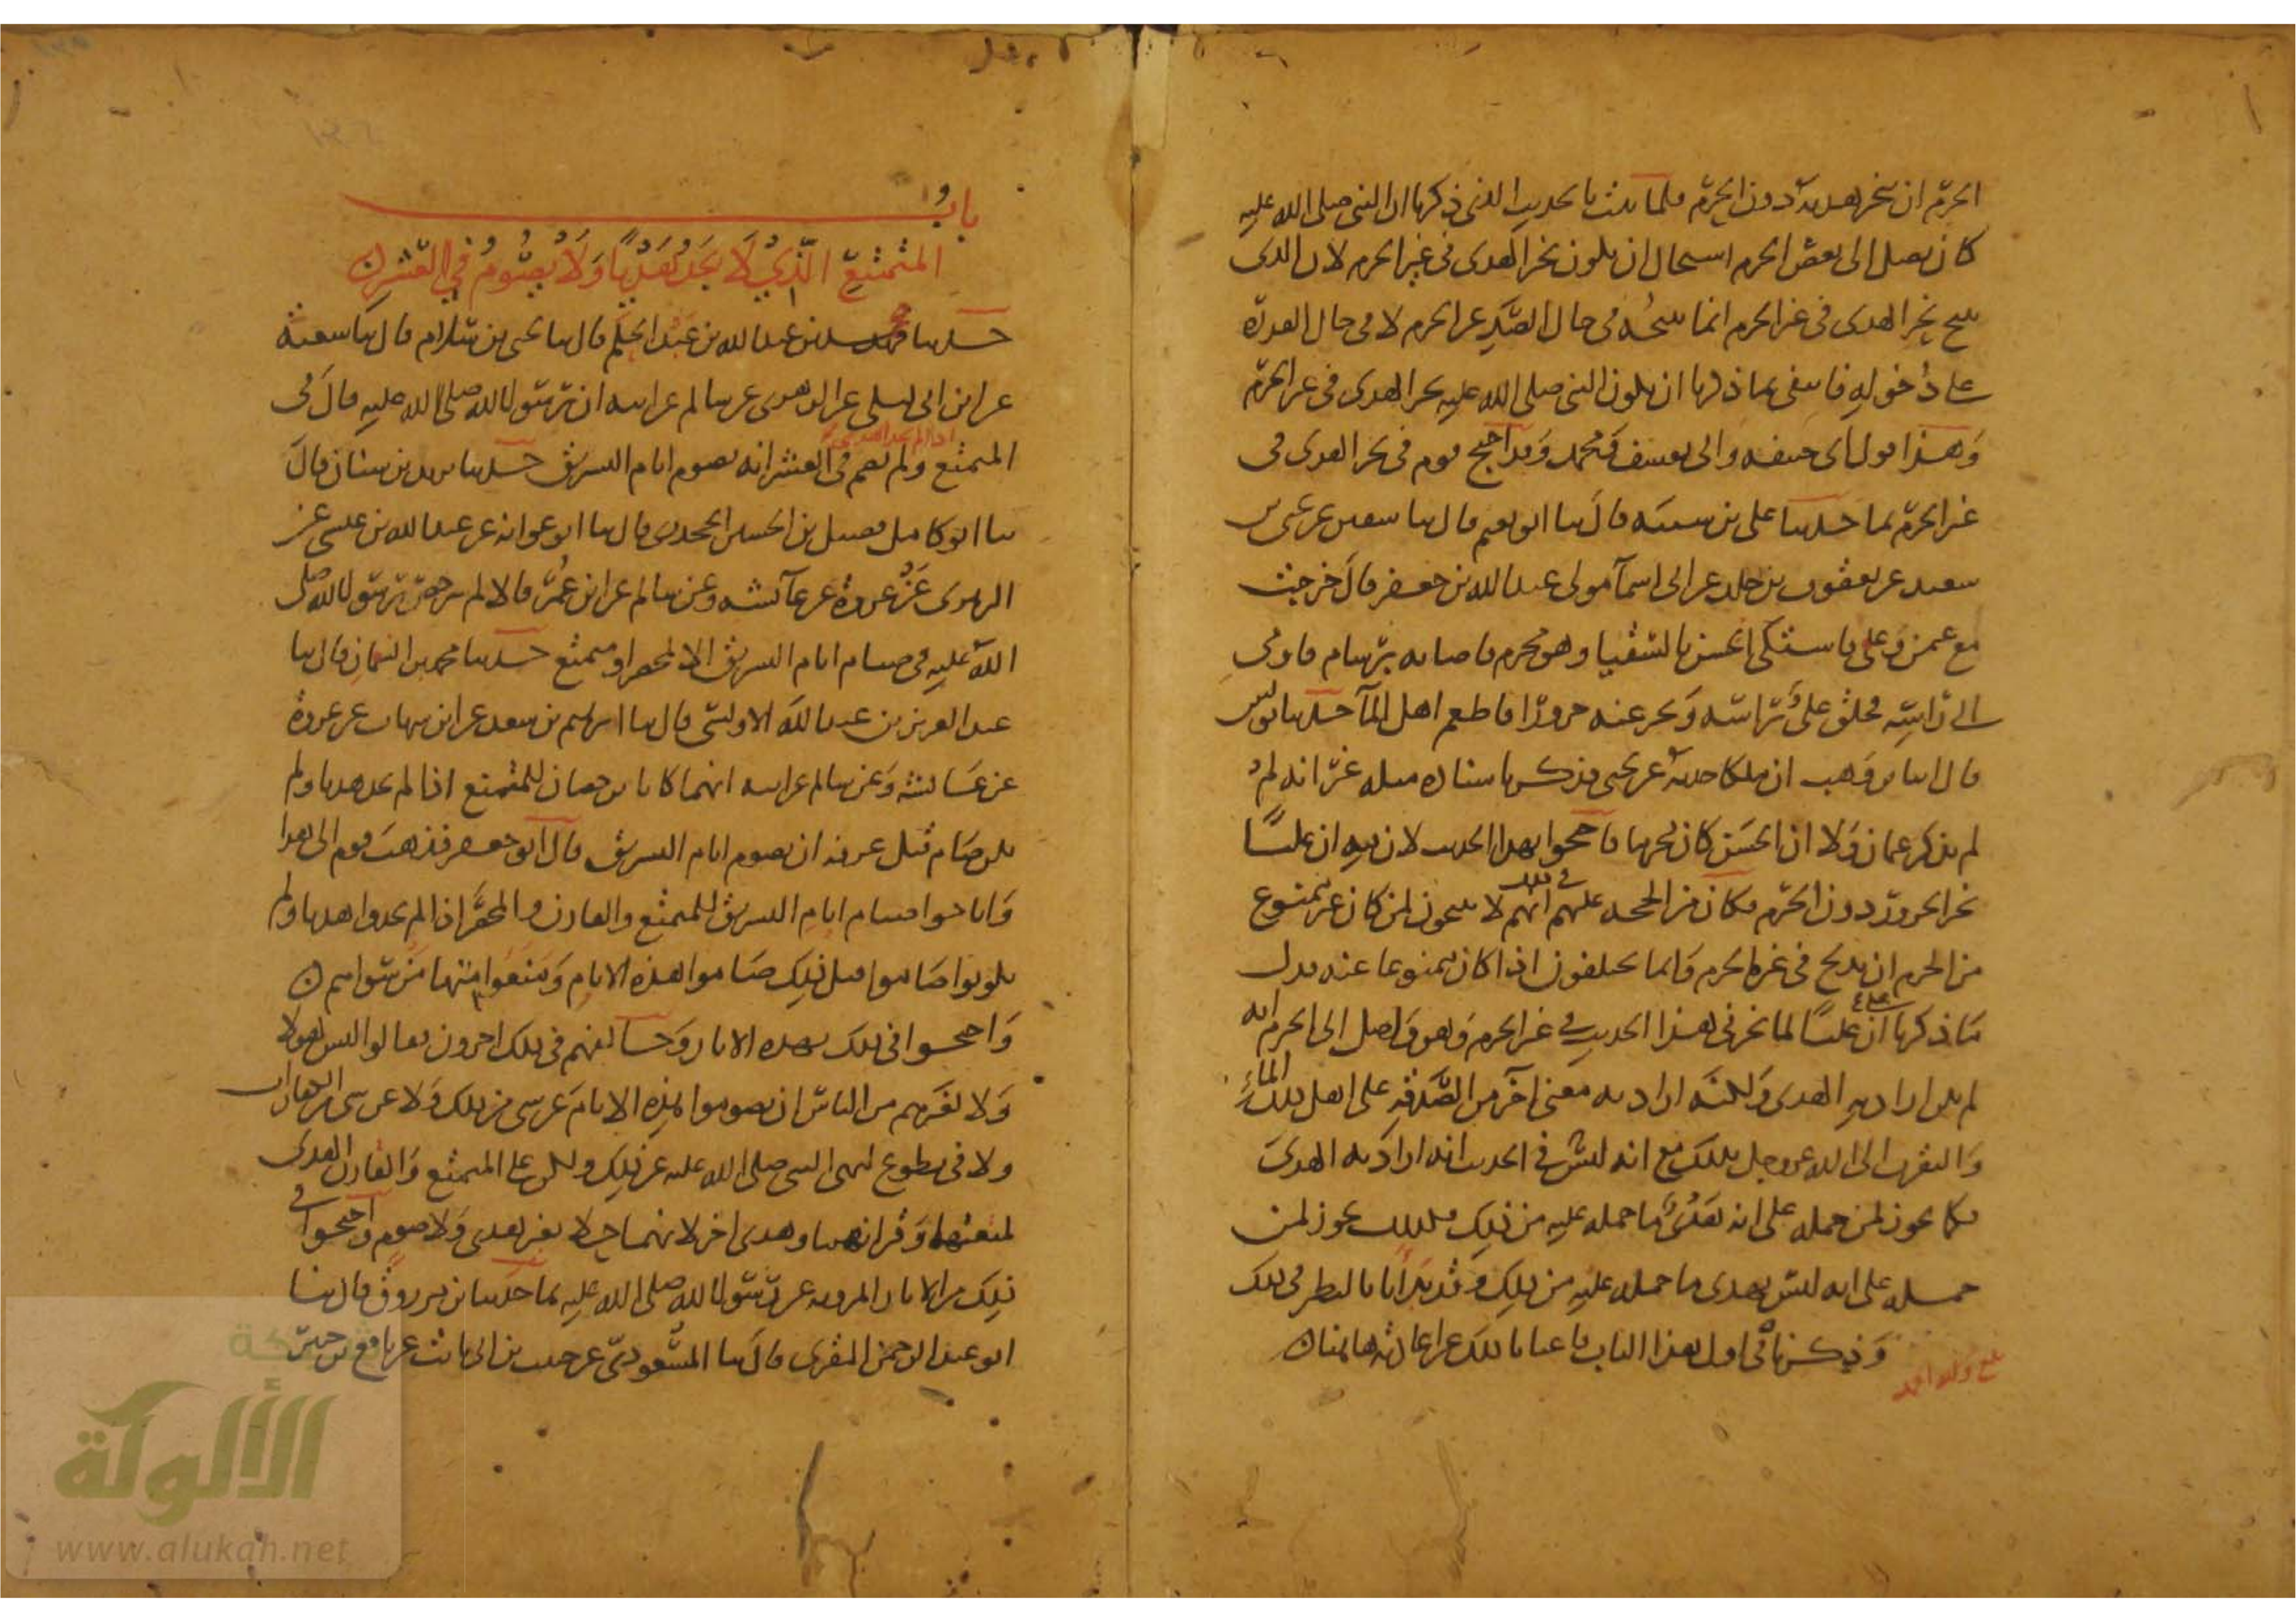 الحرم ان ينحر هديه دون الحرم فلما ثبت بالحديث الذي ذكرنا ان النبي صلى الله عليه
كان يصل الى بعض الحرم استحال ان يكون نحر الهدي في غير الحرم لان الذي
يبيح نحر الهدي في غير الحرم انما يبيحه في حال الصد عن الحرم لا في حال القدرة
على دخوله فانتفى بما ذكرنا ان يكون النبي صلى الله عليه نحر الهدي في غير الحرم
وهذا قول ابي حنيفه وابي يوسف ومحمد وقد احتج قوم في نحر الهدي في
غير الحرم بما حدثنا علي بن شيبه قال ثنا ابو نعيم قال ثنا سفين عن يحيى بن
سعيد عن يعقوب بن خلد عن ابي اسمآ مولى عبد الله بن جعفر قال خرجت
مع عثمن وعلي فاشتكى الحسن بالسقيا وهو محرم فاصابه برسام فاومى
الى راسه فحلق علي راسه ونحر عنه جزورا فاطعم اهل المآ حدثنا يونس
قال انا بن وهب ان ملكا حدثه عن يحيى فذكر باسناده مثله غير انه لم
لم يذكر عثمان ولا ان الحسن كان محرما فاحتجوا بهذا الحديث لان فيه ان عليا
نحر الجزور دون الحرم فكان من الحجه عليهم في ذلك انهم لا يبيحون لمن كان غير ممنوع
من الحرم ان يذبح في غير الحرم وانما يختلفون اذا كان ممنوعا عنه فدل
ما ذكرنا على ان عليا لما نحر في هذا الحديث في غير الحرم وهو واصل الى الحرم انه
لم يكن اراد به الهدي ولكنه اراد به معنى آخر من الصدقه على اهل ذلك المآء
والتقرب الى الله عز وجل بذلك مع انه ليس في الحديث انه اراد به الهدي
فكما يجوز لمن حمله على انه هدي ما حمله عليه من ذلك فكذلك يجوز لمن
حمله على انه ليس بهدي ما حمله عليه من ذلك وقد بدأنا بالنظر في ذلك
وذكرناه في اول هذا الباب فاغنانا ذلك عن اعادته هاهنا
باب
المتمتع الذي لا يجد هديا ولا يصوم في العشر
حدثنا محمد بن عبد الله بن عبد الحكم قال ثنا يحيى بن سلام قال ثنا شعبة
عن ابن ابي ليلى عن الزهري عن سالم عن ابيه ان رسول الله صلى الله عليه قال في
المتمتع اذا لم يجد الهدي ولم يصم في العشر انه يصوم ايام التشريق حدثنا يزيد بن سنان قال
ثنا ابو كامل فضيل بن الحسين الجحدري قال ثنا ابو عوانه عن عبد الله بن عيسى عن
الزهري عن عروة عن عآئشه وعن سالم عن ابن عمر قالا لم يرخص رسول الله صلى
الله عليه في صيام ايام التشريق الا لمحصر او متمتع حدثنا محمد بن النعمان قال ثنا
عبد العزيز بن عبد الله الاويسي قال ثنا ابرهيم بن سعد عن ابن شهاب عن عروة
عن عائشة وعن سالم عن ابيه انهما كانا يرخصان للمتمتع اذا لم يجد هديا ولم
يكن صام قبل عرفه ان يصوم ايام التشريق قال ابو جعفر فذهب قوم الى هذا
واباحوا صيام ايام التشريق للمتمتع والقارن والمحصر اذا لم يجدوا هديا ولم
يكونوا صاموا قبل ذلك صاموا هذه الايام ومنعوا منها من سواهم
واحتجوا في ذلك بهذه الاثار وخالفهم في ذلك اخرون فقالوا ليس لهولا
ولا لغيرهم من الناس ان يصوموا هذه الايام عن شي من ذلك ولا عن شي من الكفارات
ولا في تطوع لنهي النبي صلى الله عليه عن ذلك ولكن على المتمتع والقارن الهدي
لمتعتهما وقرانهما وهدي اخر لانهما حلا بغير هدي ولا صوم واحتجوا في
ذلك من الاثار المرويه عن رسول الله صلى الله عليه بما حدثنا بن مرزوق قال ثنا
ابو عبد الرحمن المقرى قال ثنا المسعودي عن حبيب بن ابي ثابت عن نافع بن جبير
الألوكة
www.alukah.net